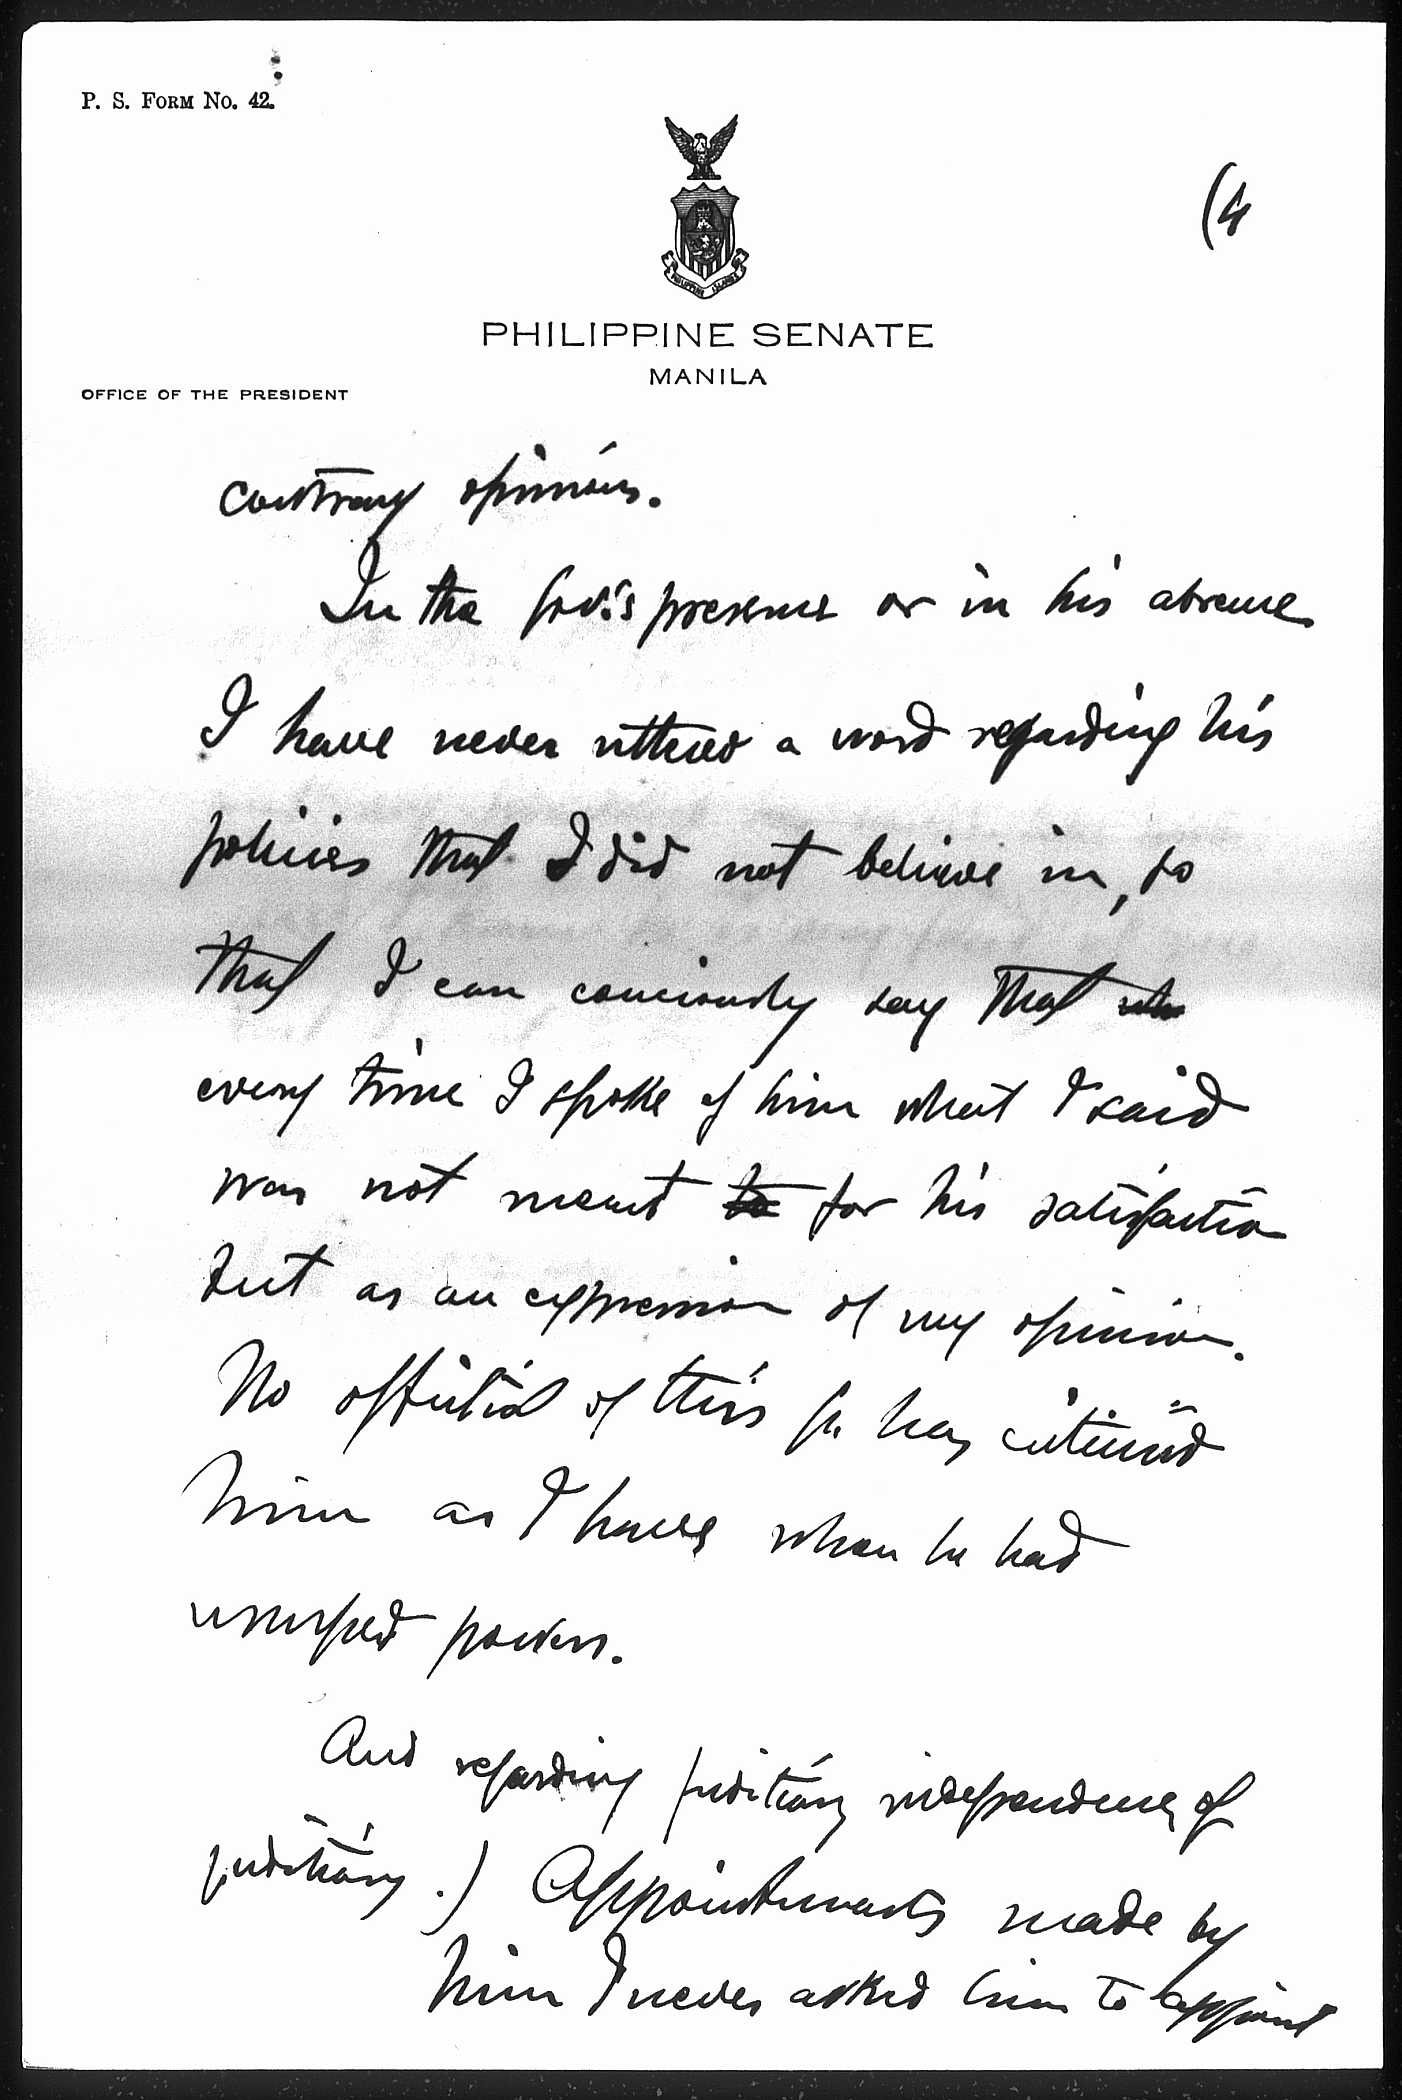 P. S. FORM No. 42.
(4
PHILIPPINE ISLANDS
PHILIPPINE SENATE
MANILA
OFFICE OF THE PRESIDENT
contrary opinions.
In the Gov.'s presence or in his absence
I have never uttered a word regarding his
policies that I did not believe in, so
that I can consciously say that
every time I spoke of him what I said
was not meant to for his satisfaction
but as an expression of my opinion.
No official of this has
him as I have when he had
usurped powers.
And regarding judiciary independence of
judiciary.) Appointments made by
him I never asked him to appoint